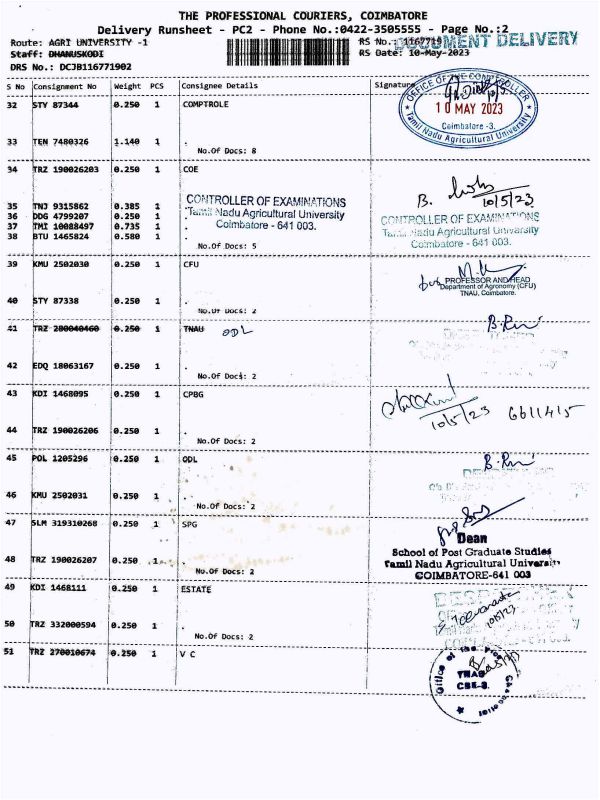 THE PROFESSIONAL COURIERS, COIMBATORE
Delivery Runsheet - PC2 - Phone No.:0422-3505555 - Page No.:2
Route: AGRI UNIVERSITY -1 RS No.: 1167719 DOCUMENT DELIVERY
Staff: DHANUSKODI RS Date: 10-May-2023
DRS No.: DCJB116771902
S No Consignment No Weight PCS Consignee Details Signature
32 STY 87344 0.250 1 COMPTROLE
OFFICE OF THE COMPTROLLER
10 MAY 2023
Coimbatore -3.
Tamil Nadu Agricultural University
33 TEN 7480326 1.140 1 .
No.Of Docs: 8
34 TRZ 190026203 0.250 1 COE
B. 10/5/23
35 TNJ 9315862 0.385 1 .
36 DDG 4799207 0.250 1 .
37 TMI 10088497 0.735 1 .
38 BTU 1465824 0.580 1 .
CONTROLLER OF EXAMINATIONS
Tamil Nadu Agricultural University
Coimbatore - 641 003.
CONTROLLER OF EXAMINATIONS
Tamil Nadu Agricultural University
Coimbatore - 641 003.
No.Of Docs: 5
39 KMU 2502030 0.250 1 CFU
for PROFESSOR AND HEAD
Department of Agronomy (CFU)
TNAU, Coimbatore.
40 STY 87338 0.250 1 .
No.Of Docs: 2
41 TRZ 280040460 0.250 1 TNAU ODL
42 EDQ 18063167 0.250 1 .
No.Of Docs: 2
43 KDI 1468095 0.250 1 CPBG
10/5/23 6611415
44 TRZ 190026206 0.250 1 .
No.Of Docs: 2
45 POL 1205296 0.250 1 ODL
46 KMU 2502031 0.250 1 .
No.Of Docs: 2
47 SLM 319310268 0.250 1 SPG
Dean
School of Post Graduate Studies
Tamil Nadu Agricultural University
COIMBATORE-641 003
48 TRZ 190026207 0.250 1 .
No.Of Docs: 2
49 KDI 1468111 0.250 1 ESTATE
10/5/23
50 TRZ 332000594 0.250 1 .
No.Of Docs: 2
51 TRZ 270010674 0.250 1 V C
Office of the
TNAU
CBE-3.